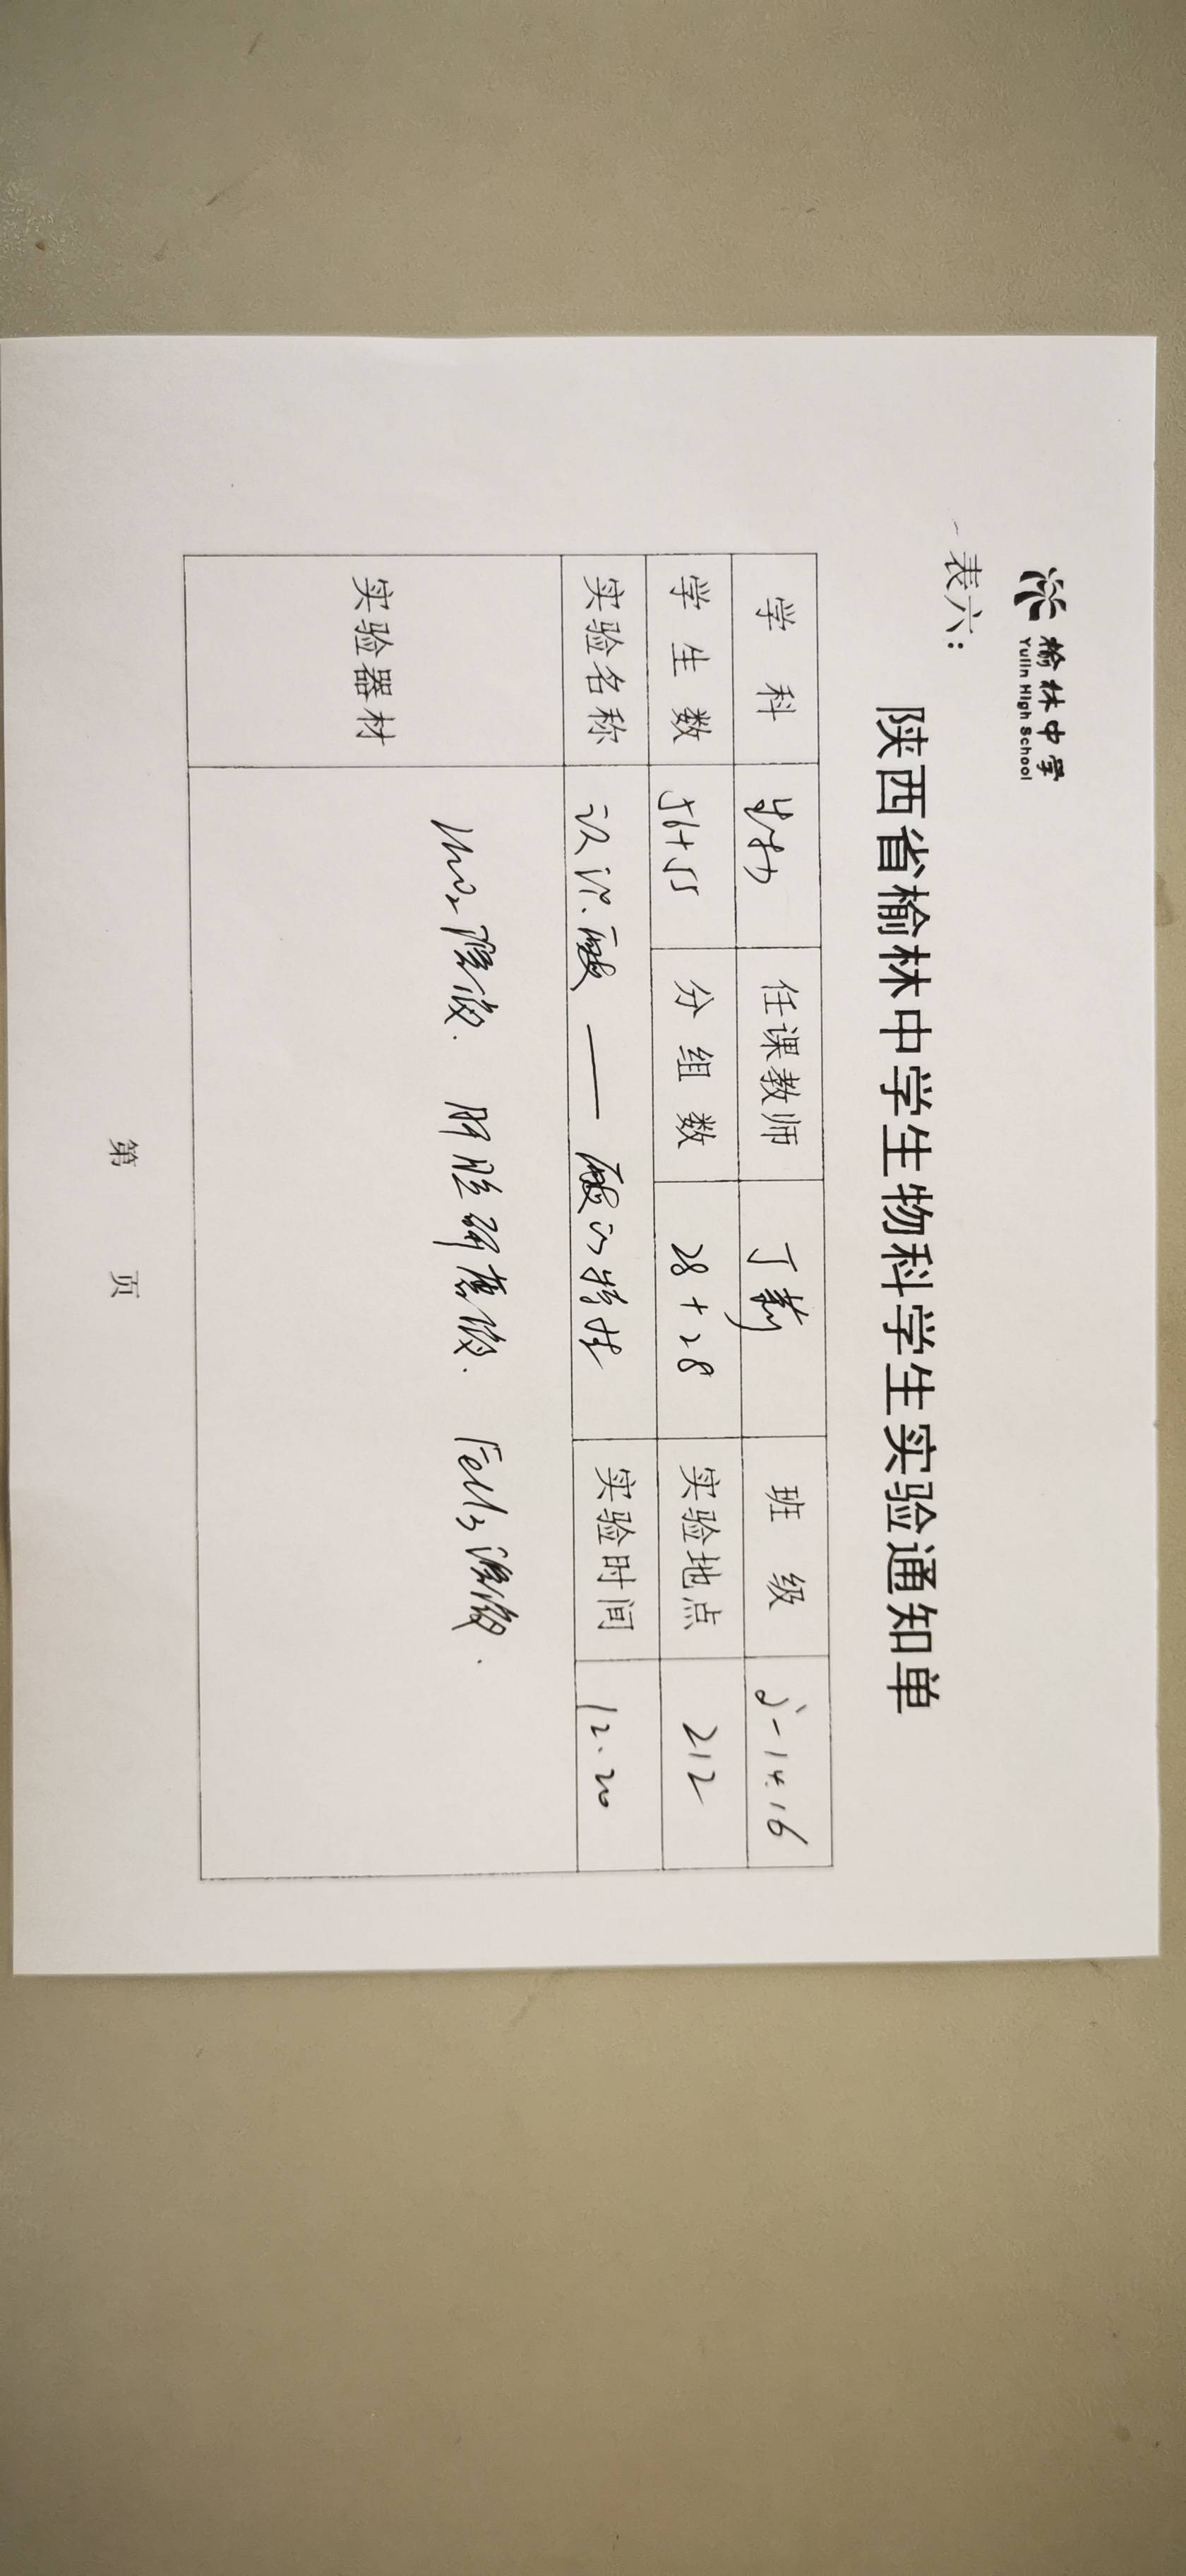 榆林中学
Yulin High School
表六:
陕西省榆林中学生物科学生实验通知单
学 科 生物 任课教师 丁莉 班 级 高一14.16
学 生 数 56+55 分 组 数 28+28 实验地点 212
实验名称 认识酶——酶的特性 实验时间 12.20
实验器材 MnO2溶液. 肝脏研磨液. FeCl3溶液.
第 页